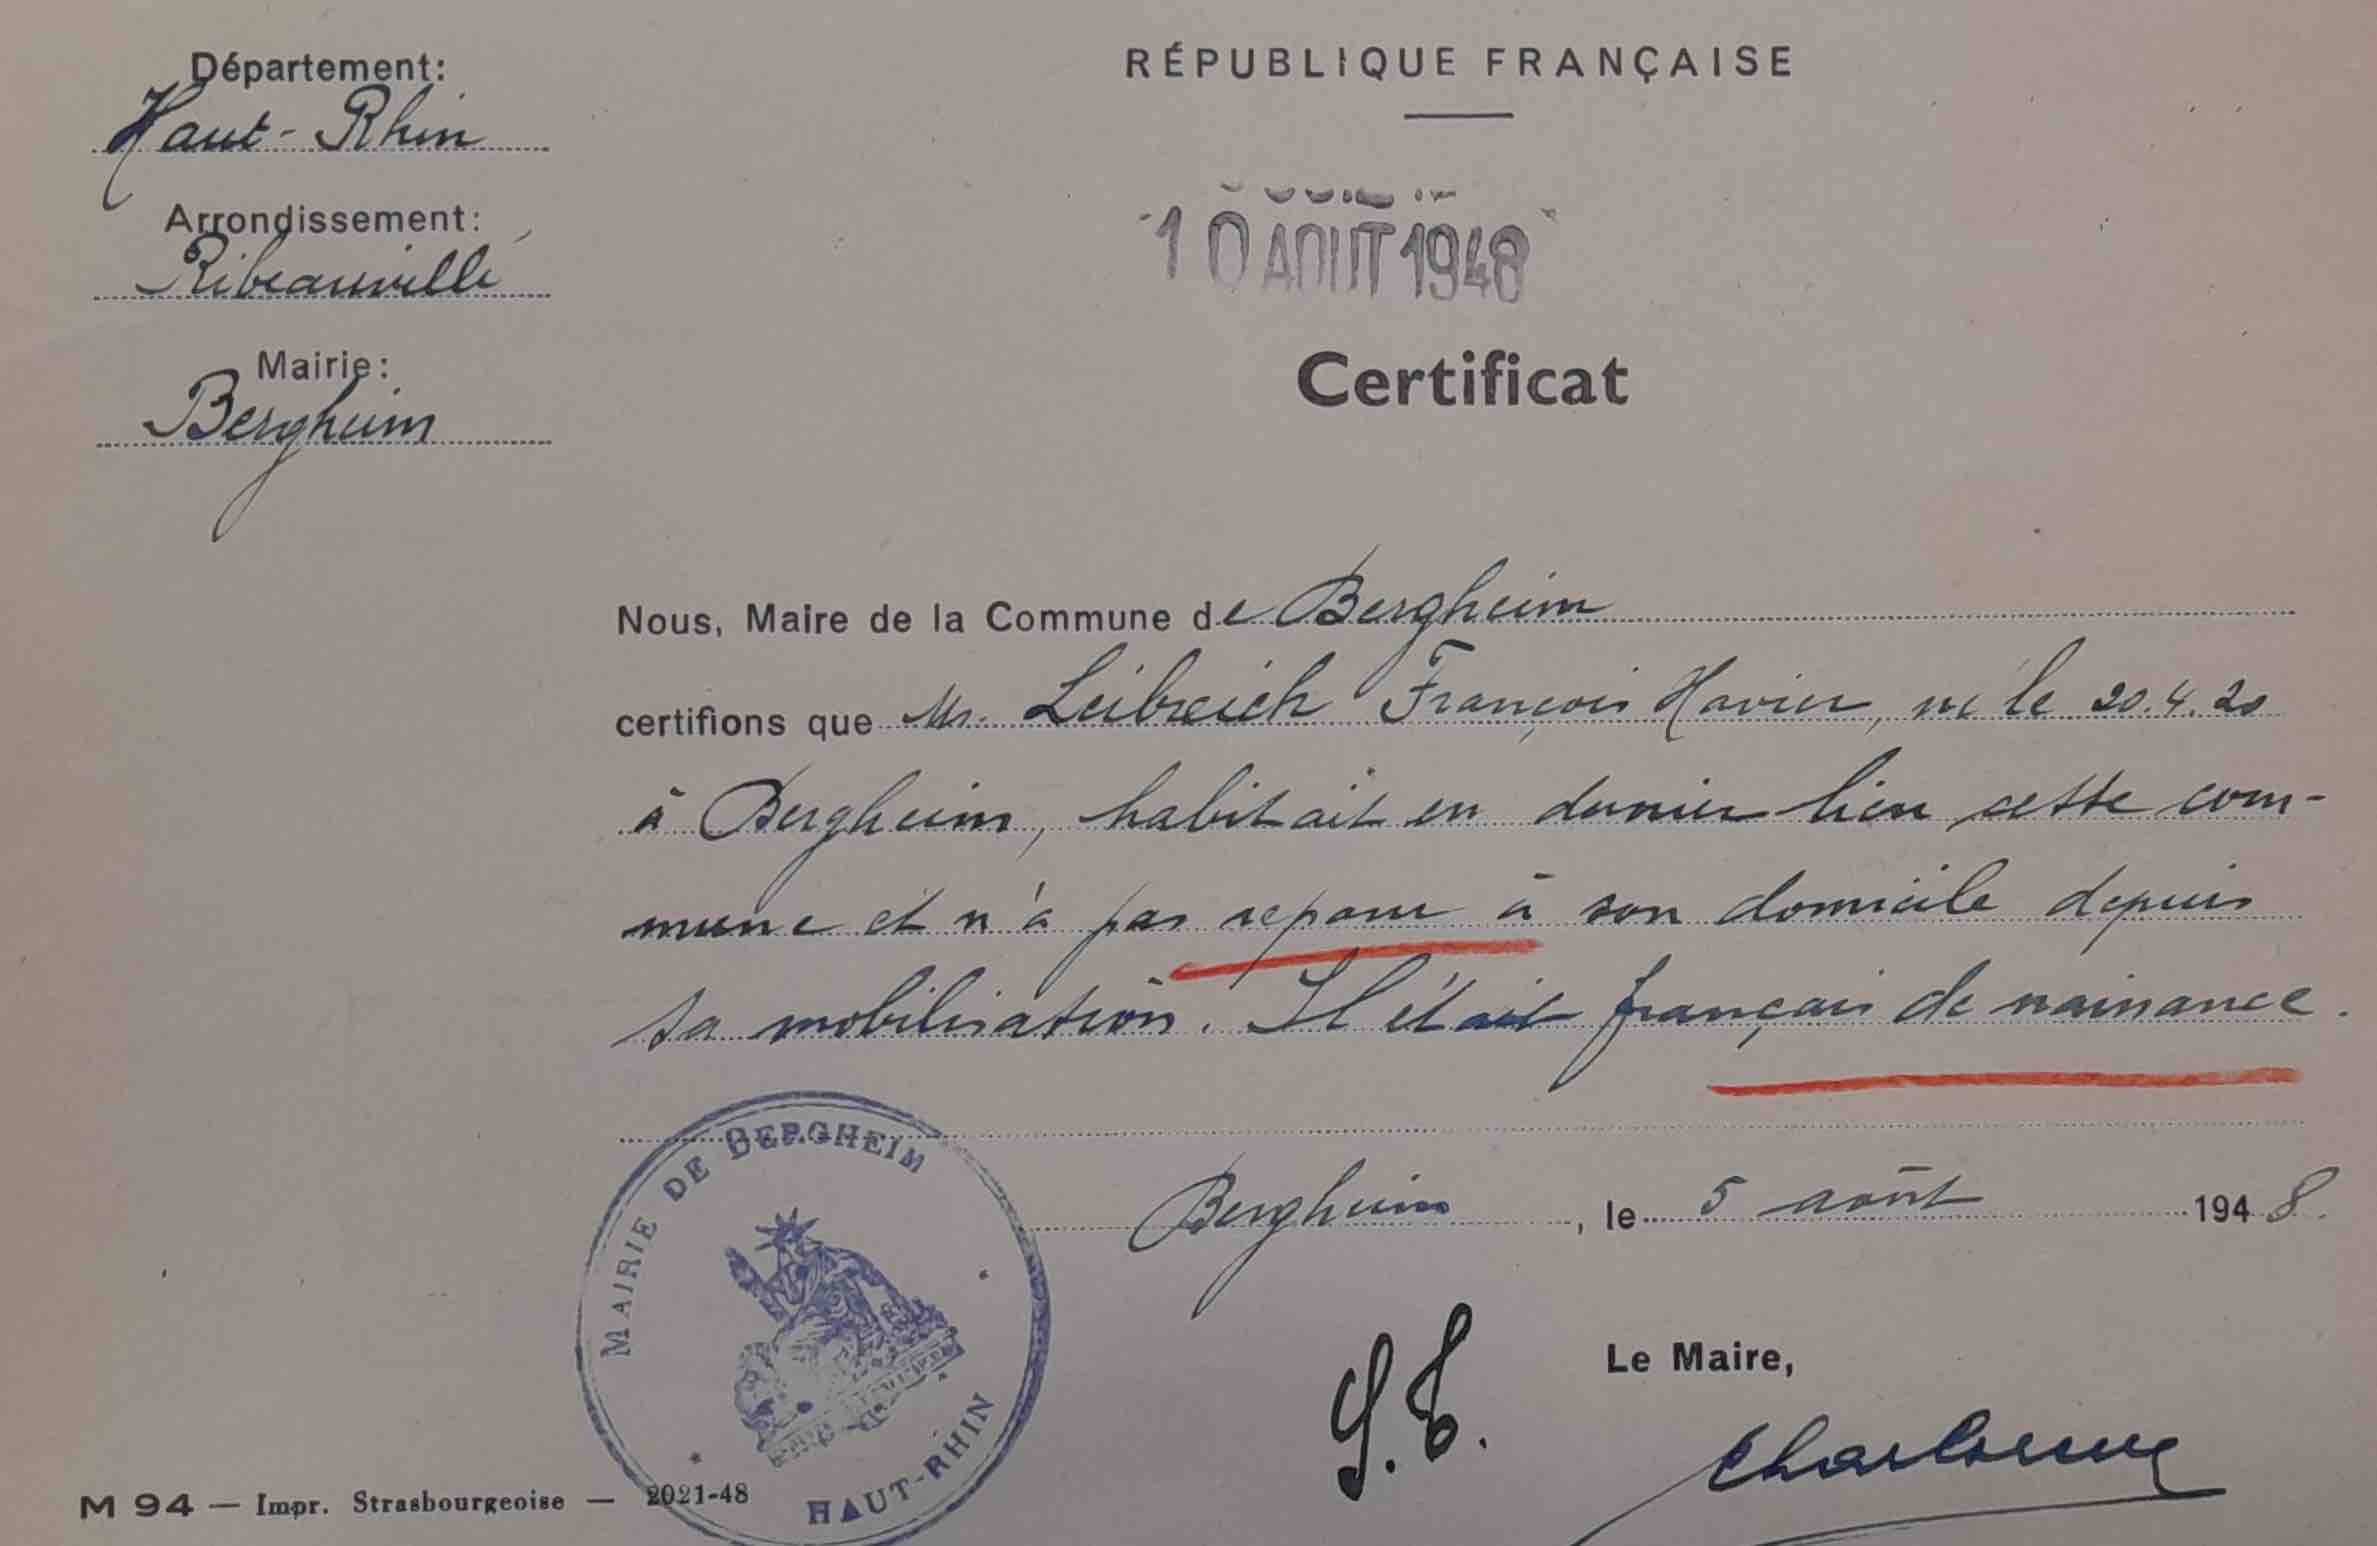 Département:
Haut-Rhin
Arrondissement:
Ribeauvillé
Mairie:
Bergheim
RÉPUBLIQUE FRANÇAISE
10 AOUT 1948
Certificat
Nous, Maire de la Commune de Bergheim
certifions que Mr. Leibreich François Xavier, né le 20.4.20
à Bergheim, habitait en dernier lieu cette com-
mune et n'a pas reparu à son domicile depuis
sa mobilisation. Il était français de naissance.
Bergheim, le 5 août 1948.
Le Maire,
MAIRIE DE BERGHEIM
HAUT-RHIN
M 94 — Impr. Strasbourgeoise — 2021-48